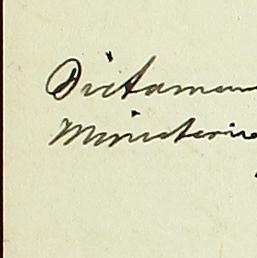 Dictamen
Ministerio